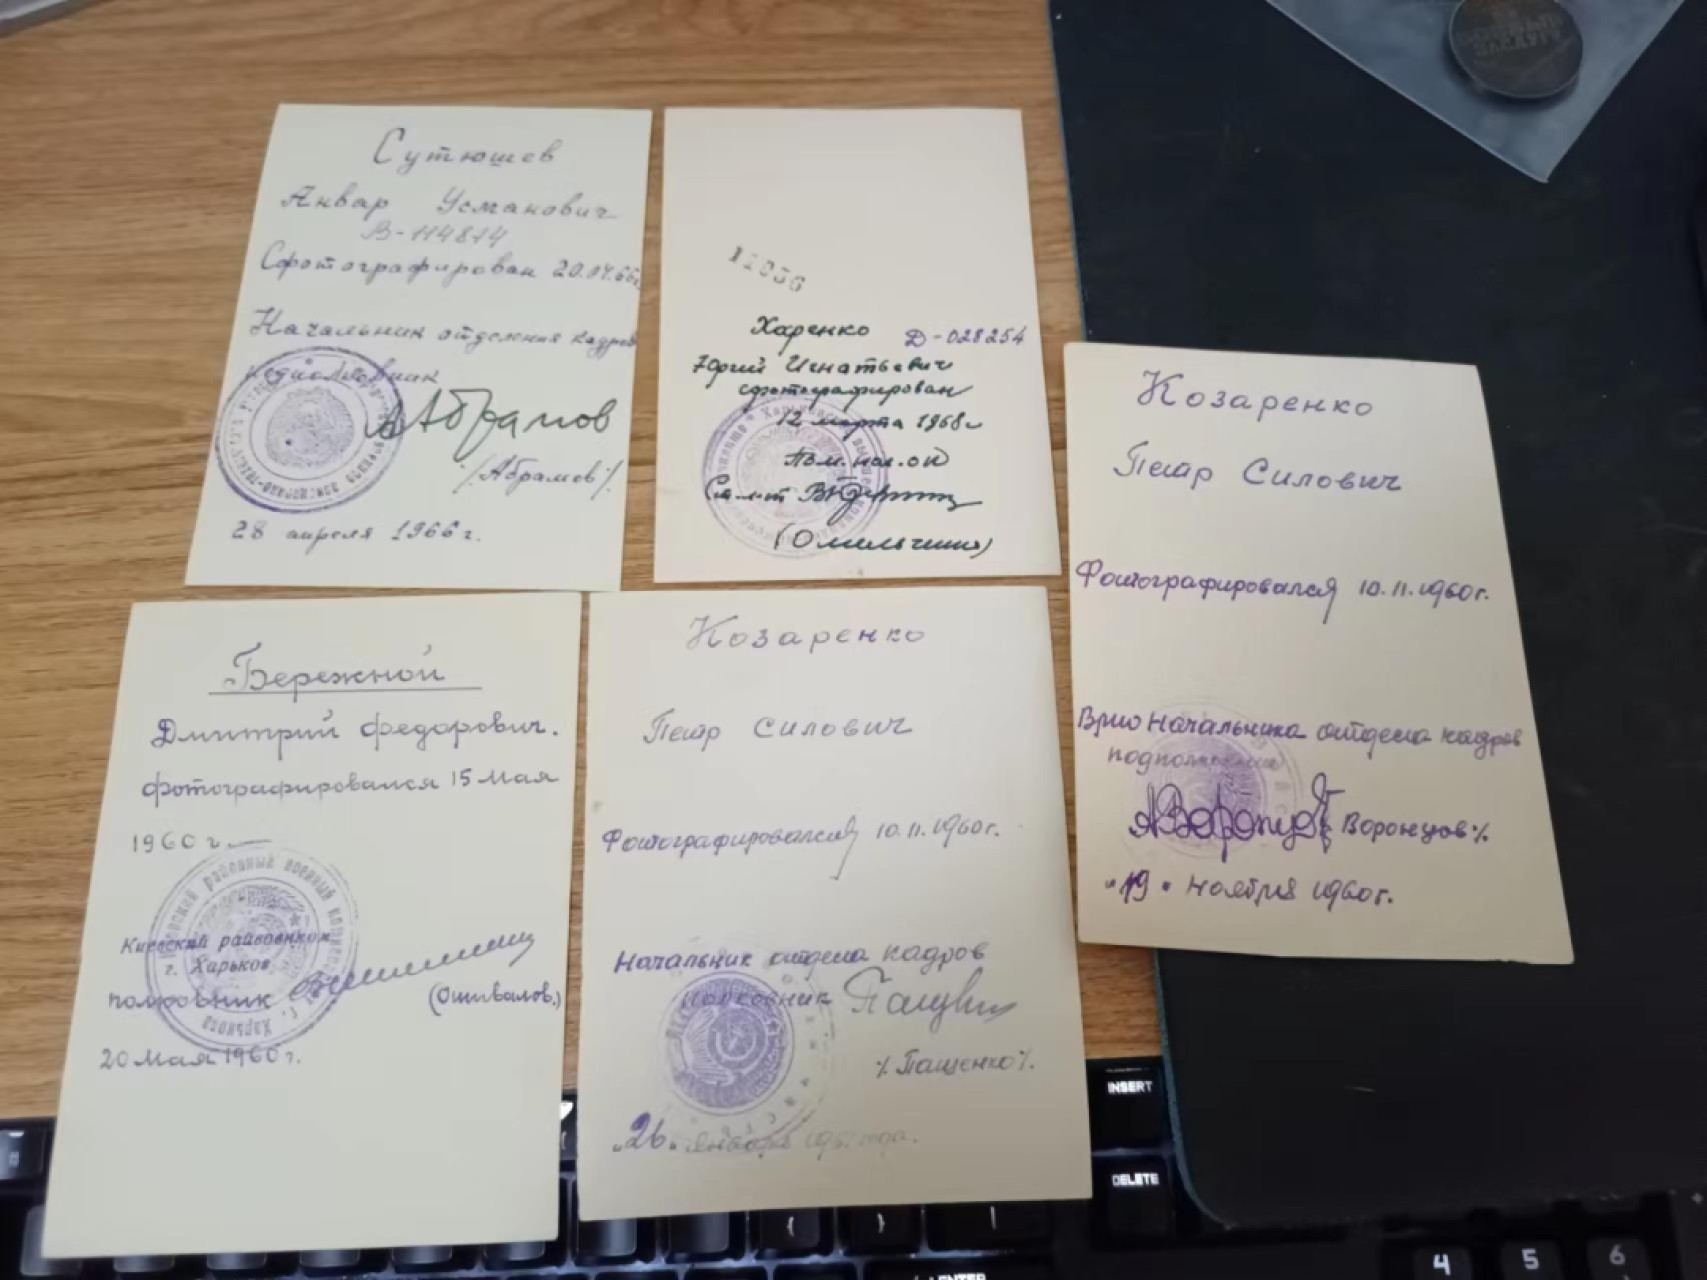 Сутюшев
Анвар Усманович
В-114814
Сфотографирован 20.04.66г.
Начальник отделения кадров
Абрамов
/Абрамов/.
28 апреля 1966 г.
12036
Харенко Д-028254
Юрий Игнатьевич
сфотографирован
12 марта 1968 г
Пом. нач. ОК
Ст. л-т
Козаренко
Петр Силович
Фотографировался 10.11.1960г.
Врио Начальника отдела кадров
подполковник
Воронцов%
"19" ноября 1960г.
Бережной
Дмитрий Федорович.
фотографировался 15 Мая
1960 г.
районный военный
Киевский райвоенком
г. Харьков
полковник (Ошивалов.)
г. Харькова
20 Мая 1960 г.
Козаренко
Петр Силович
Фотографировался 10.11.1960г.
Начальник отдела кадров
полковник
% Пащенко %.
"26" января года.
INSERT
DELETE
{ } |
ENTER
4 5 6